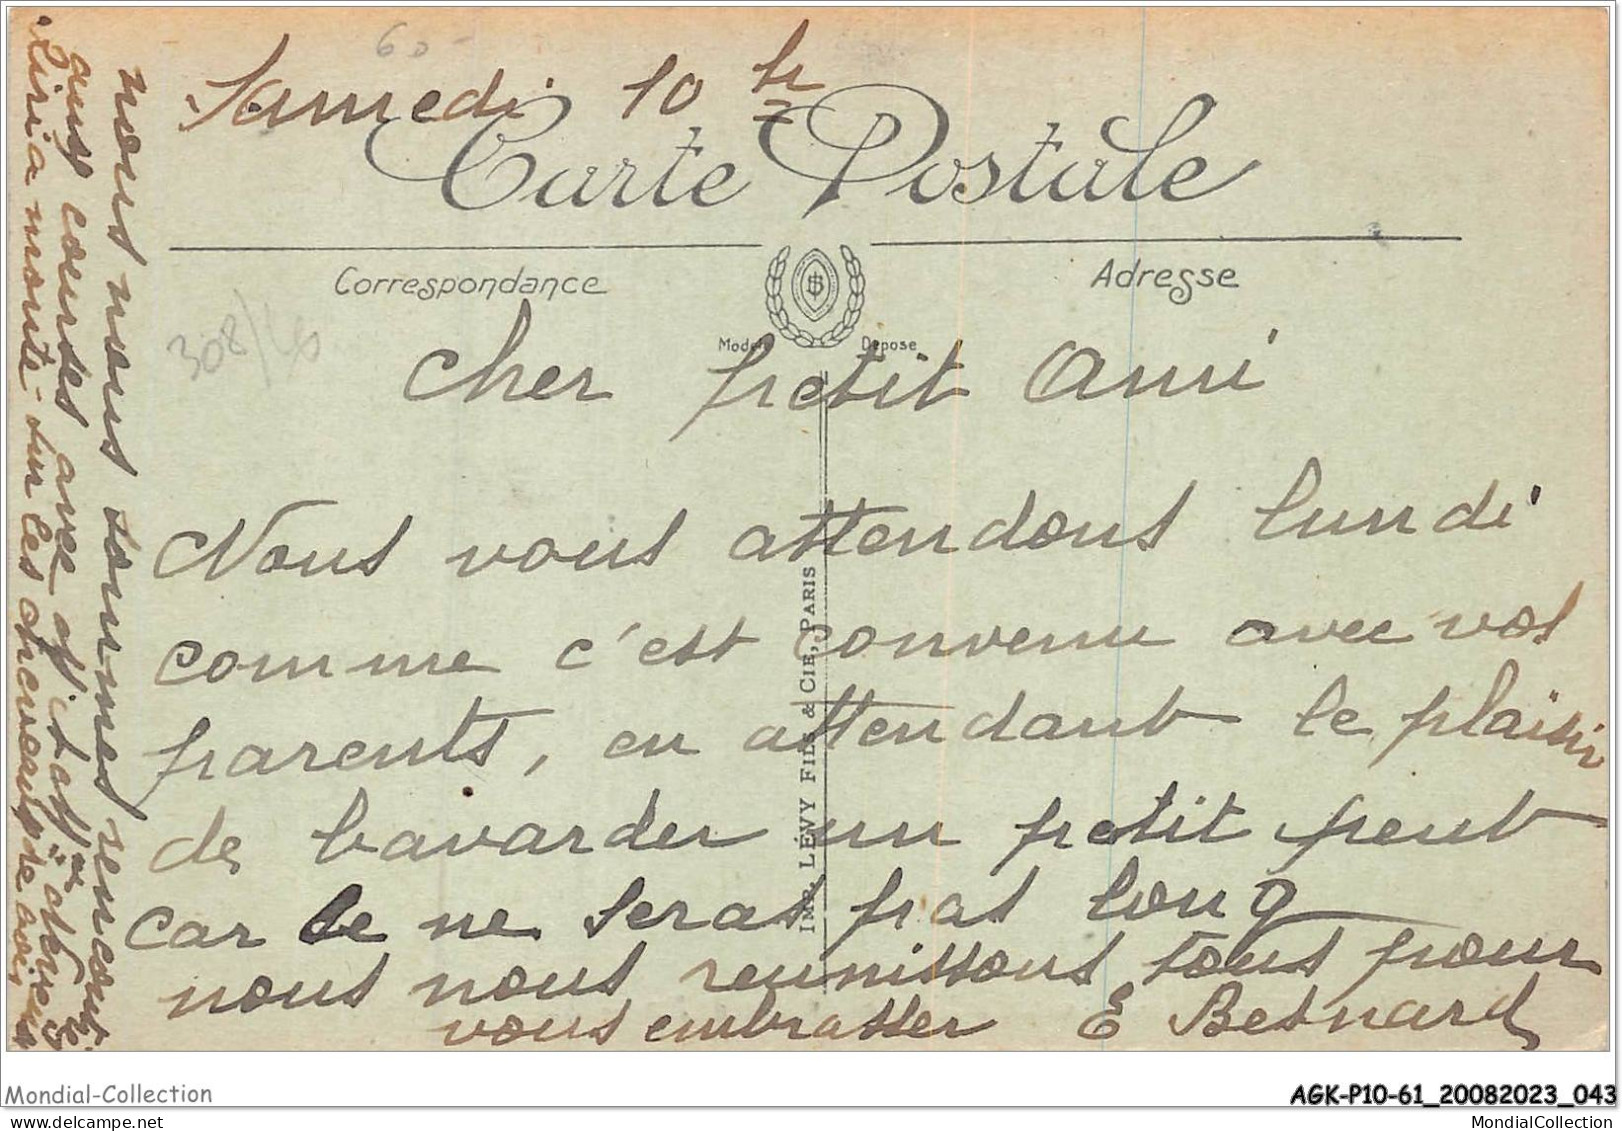 60 -
Samedi 10 h
Carte Postale
Correspondance
Adresse
308/40
Modèle Déposé
Cher petit Ami
Nous vous attendons lundi
comme c'est convenu avec vos
parents, en attendant le plaisir
de bavarder un petit peut
car ce ne seras pas long
nous nous reunissons tous pour
vous embrasser E Besnard
nous nous sommes rencontr
aux courses avec
Liria monté sur les cheveaux de bois
IMP. LÉVY FILS & CIE, PARIS
Mondial-Collection
AGK-P10-61_20082023_043
MondialCollection